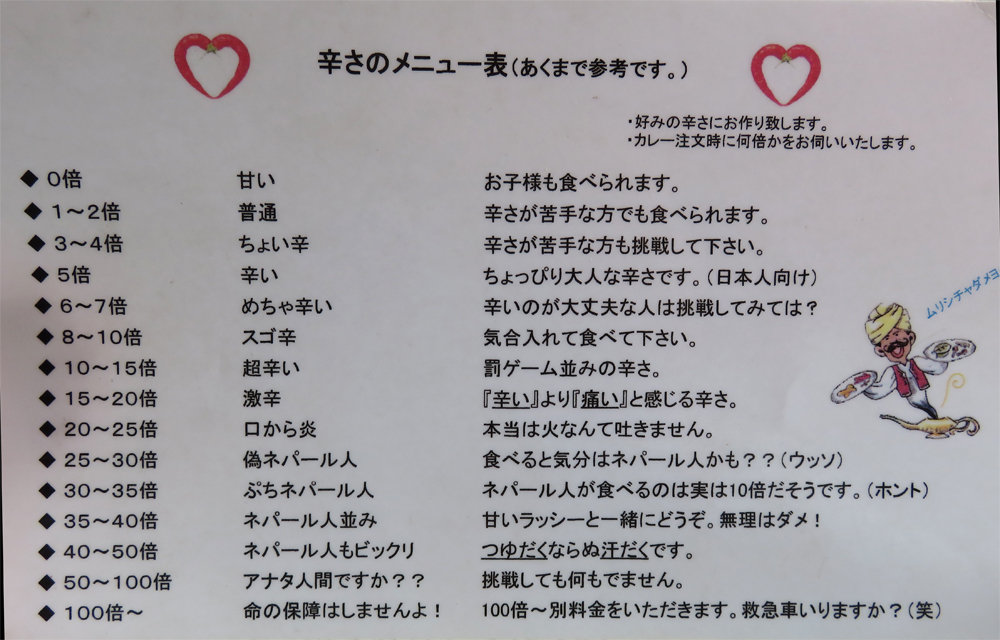 辛さのメニュー表(あくまで参考です。)
・好みの辛さにお作り致します。
・カレー注文時に何倍かをお伺いいたします。
◆ 0倍 甘い お子様も食べられます。
◆ 1～2倍 普通 辛さが苦手な方でも食べられます。
◆ 3～4倍 ちょい辛 辛さが苦手な方も挑戦して下さい。
◆ 5倍 辛い ちょっぴり大人な辛さです。(日本人向け)
◆ 6～7倍 めちゃ辛い 辛いのが大丈夫な人は挑戦してみては?
ムリシチャダメヨ
◆ 8～10倍 スゴ辛 気合入れて食べて下さい。
◆ 10～15倍 超辛い 罰ゲーム並みの辛さ。
◆ 15～20倍 激辛 『辛い』より『痛い』と感じる辛さ。
◆ 20～25倍 口から炎 本当は火なんて吐きません。
◆ 25～30倍 偽ネパール人 食べると気分はネパール人かも??(ウッソ)
◆ 30～35倍 ぷちネパール人 ネパール人が食べるのは実は10倍だそうです。(ホント)
◆ 35～40倍 ネパール人並み 甘いラッシーと一緒にどうぞ。無理はダメ!
◆ 40～50倍 ネパール人もビックリ つゆだくならぬ汗だくです。
◆ 50～100倍 アナタ人間ですか?? 挑戦しても何もでません。
◆ 100倍～ 命の保障はしませんよ! 100倍～別料金をいただきます。救急車いりますか?(笑)